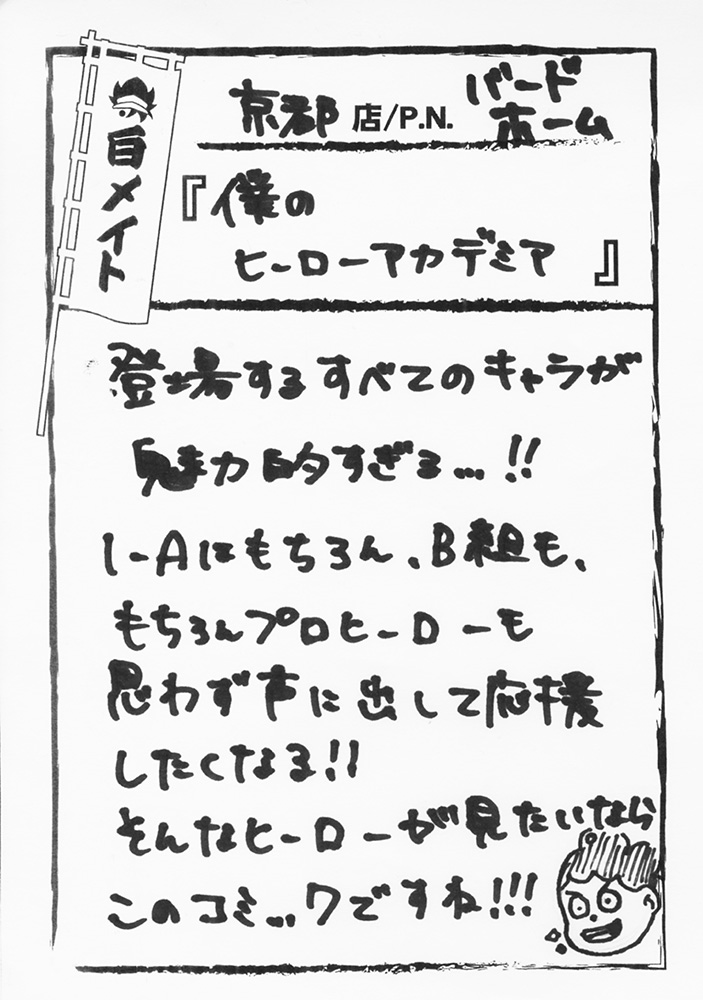 目メイト
京都 店/P.N. バードホーム
『僕の
ヒーローアカデミア』
登場するすべてのキャラが
魅力的すぎる…!!
1-Aはもちろん、B組も、
もちろんプロヒーローも
思わず声に出して応援
したくなる!!
そんなヒーローが見たいなら
このコミックですね!!!